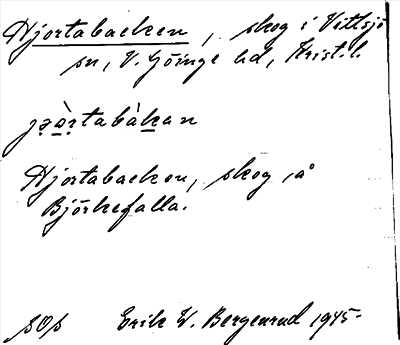 Hjortabacken, skog i Vittsjö
sn, V. Göinge hd, Krist. l.
jɔ̀rtabàkan
Hjortabacken, skog å
Björkefalla.
SOP Erik W. Bergenrud 1945.